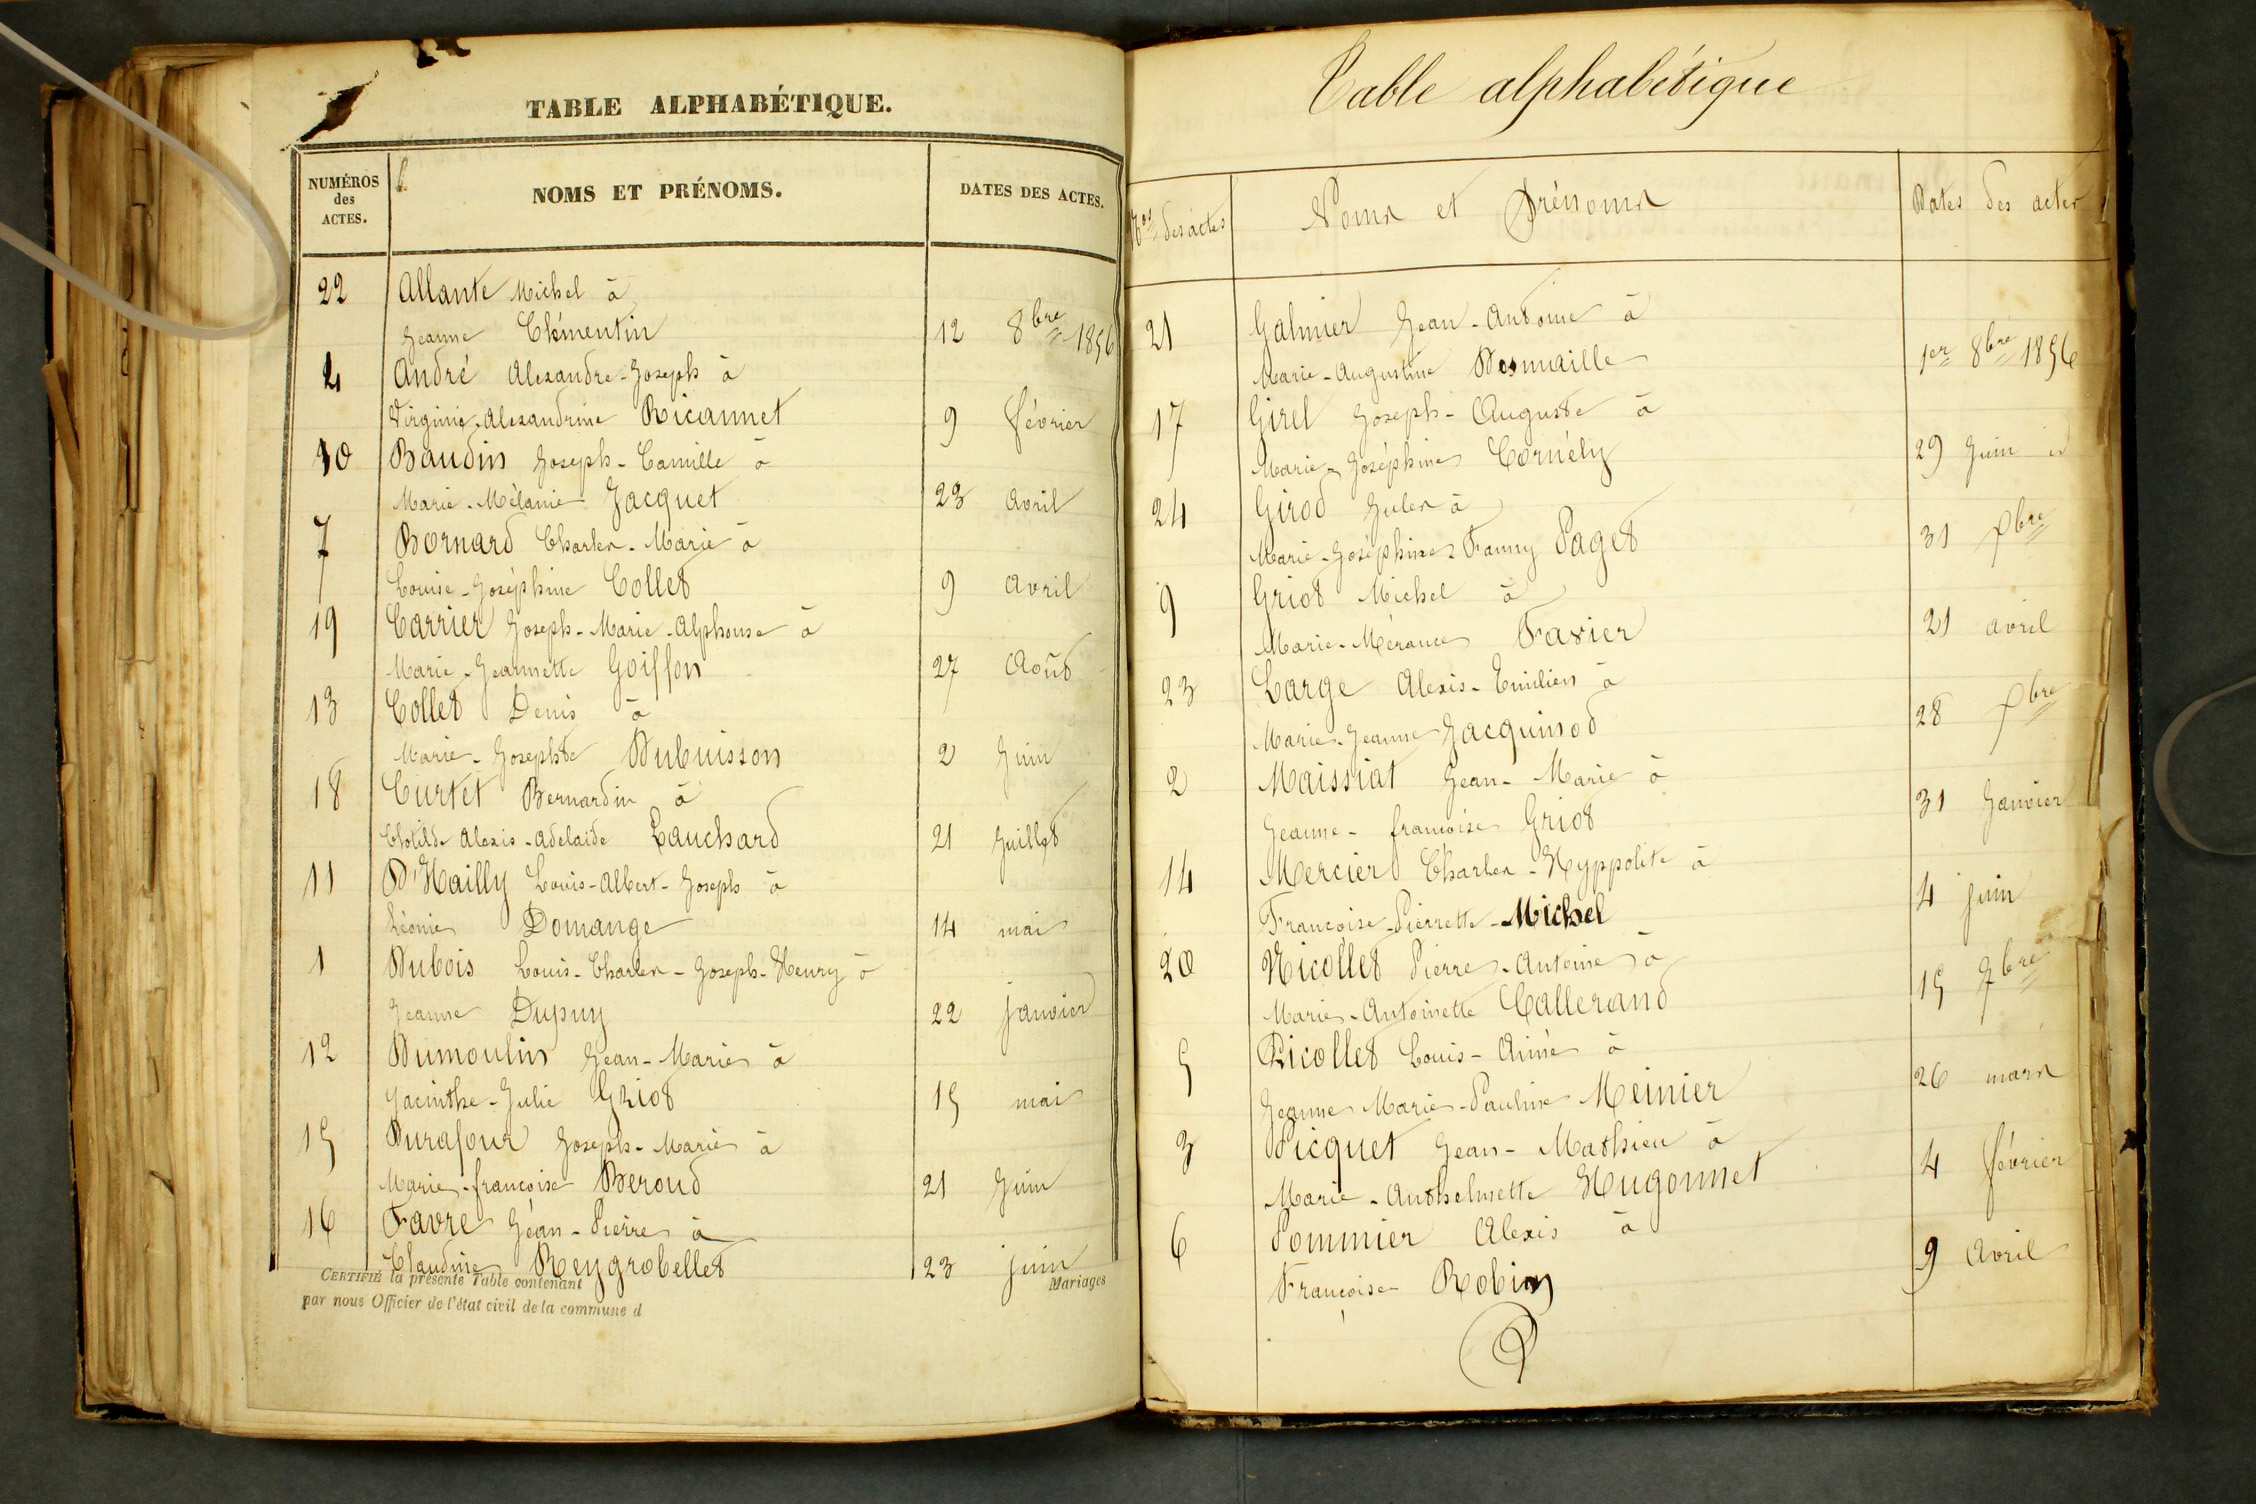 TABLE ALPHABÉTIQUE.
NUMÉROS des ACTES.
NOMS ET PRÉNOMS.
DATES DES ACTES.
22 Allante Michel à
Jeanne Clémentin 12 8bre 1856
4 André Alexandre-Joseph à
Virginie-Alexandrine Ricannet 9 février
10 Baudin Joseph-Camille à
Marie-Mélanie Jacquet 23 avril
7 Bornard Charles-Marie à
Louise-Joséphine Collet 9 avril
19 Carrier Joseph-Marie-Alphonse à
Marie-Jeannette Goiffon 27 Août
13 Collet Denis à
Marie-Josephte Dubuisson 2 Juin
18 Curtet Bernardin à
Clotilde Alexis-Adelaïde Lauchard 21 Juillet
11 D'Hailly Louis-Albert-Joseph à
Léonie Domange 14 mai
1 Dubois Louis-Charles-Joseph-Henry à
Jeanne Dupuy 22 janvier
12 Dumoulin Jean-Marie à
Jacinthe-Julie Griot 15 mai
15 Durafour Joseph-Marie à
Marie-françoise Beroud 21 Juin
16 Favre Jéan-Pierre à
Claudine Reygrobellet 23 juin
CERTIFIÉ la présente Table contenant Mariages
par nous Officier de l'état civil de la commune d
Table alphabétique
Nos des actes
Noms et Prénoms
Dates des actes
21 Galmier Jean-Antoine à
Marie-Augustine Desmaille 1er 8bre 1856
17 Girel Joseph-Auguste à
Marie-Joséphine Cornély 29 Juin id
24 Girod Jules à
Marie-Joséphine-Fanny Paget 31 Xbre
9 Griot Michel à
Marie-Mérance Favier 21 avril
23 Large Alexis-Emilien à
Marie-Jeanne Jacquinod 28 Xbre
2 Maissiat Jean-Marie à
Jeanne-françoise Griot 31 Janvier
14 Mercier Charles-Hyppolite à
Françoise-Pierrette-Michel 4 juin
20 Nicollet Pierre-Antoine à
Marie-Antoinette Callerand 15 7bre
5 Nicollet Louis-Aimé à
Jeanne Marie-Pauline Meinier 26 mars
3 Picquet Jean-Mathieu à
Marie-Anthelmette Hugonnet 4 février
6 Pommier Alexis à
Françoise Robin 9 Avril